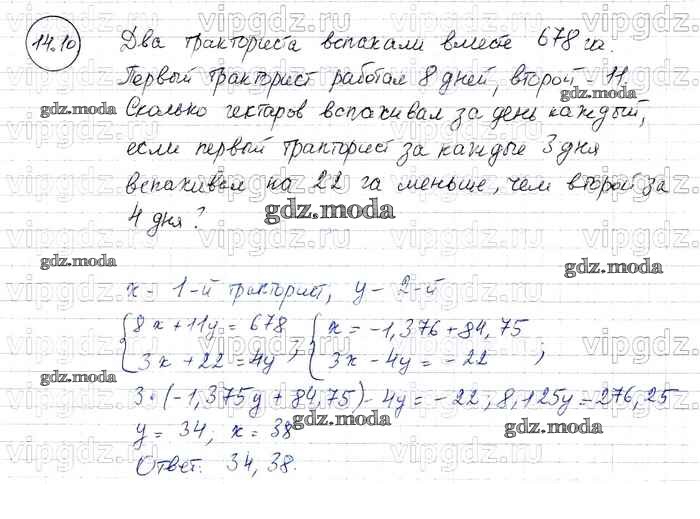 14.10 Два тракториста вспахали вместе 678 га.
Первый тракторист работал 8 дней, второй - 11.
Сколько гектаров вспахивал за день каждый,
если первый тракторист за каждые 3 дня
вспахивал на 22 га меньше, чем второй за
4 дня?
x - 1-й тракторист, y - 2-й
{8x + 11y = 678 {x = -1,376 + 84,75
{3x + 22 = 4y ; {3x - 4y = -22 ;
3 · (-1,375y + 84,75) - 4y = -22; 8,125y = 276,25
y = 34; x = 38
Ответ: 34, 38.
gdz.moda
vipgdz.ru